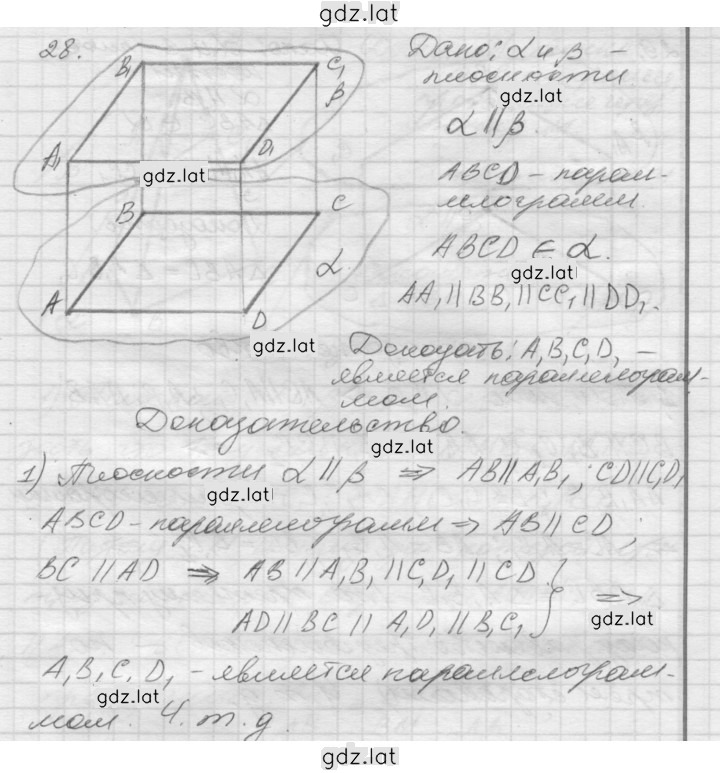 gdz.lat
28.
B₁ C₁
β
A₁ D₁
gdz.lat
B C
α
A D
gdz.lat
Дано: α и β –
плоскости
gdz.lat
α || β.
ABCD – парал-
лелограмм.
ABCD ∈ α.
gdz.lat
AA₁ || BB₁ || CC₁ || DD₁.
Доказать: A₁B₁C₁D₁ –
является параллелограм-
мом.
Доказательство.
gdz.lat
1) Плоскости α || β ⇒ AB || A₁B₁; CD || C₁D₁
gdz.lat
ABCD – параллелограмм ⇒ AB || CD;
BC || AD ⇒ AB || A₁B₁ || C₁D₁ || CD }
AD || BC || A₁D₁ || B₁C₁ } ⇒
gdz.lat
A₁B₁C₁D₁ – является параллелограм-
gdz.lat
мом. Ч.т.д.
gdz.lat